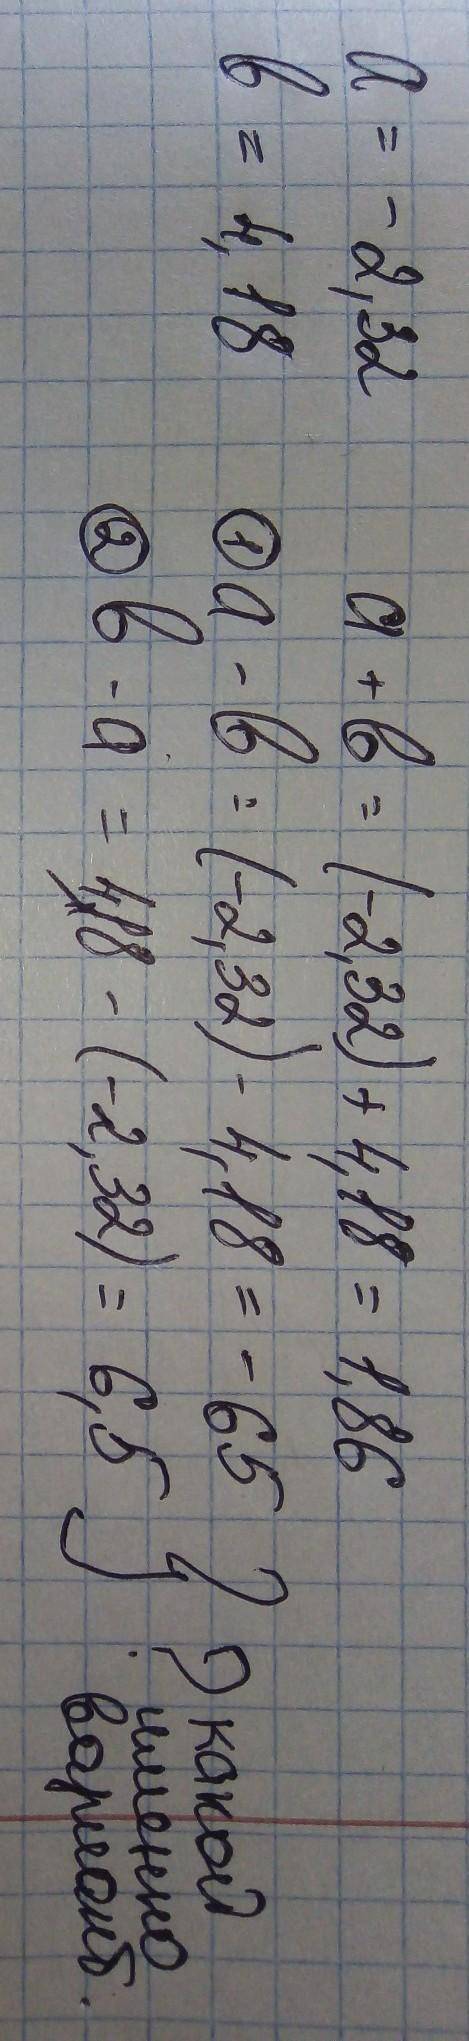 a = -2,32
в = 4,18
a + в = (-2,32) + 4,18 = 1,86
① a - в = (-2,32) - 4,18 = -65
② в - a = 4,18 - (-2,32) = 6,5
} ? какой
именно
вариант.